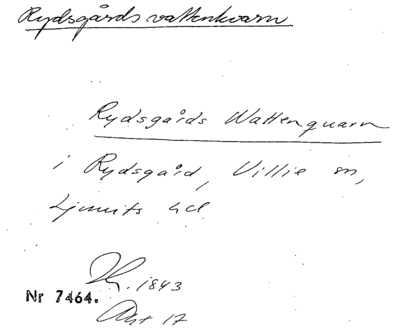 Rydsgårds vattenkvarn
Rydsgårds Wattenquarn
i Rydsgård, Villie sn,
Ljunits hd
Nr 7464.
1843
17